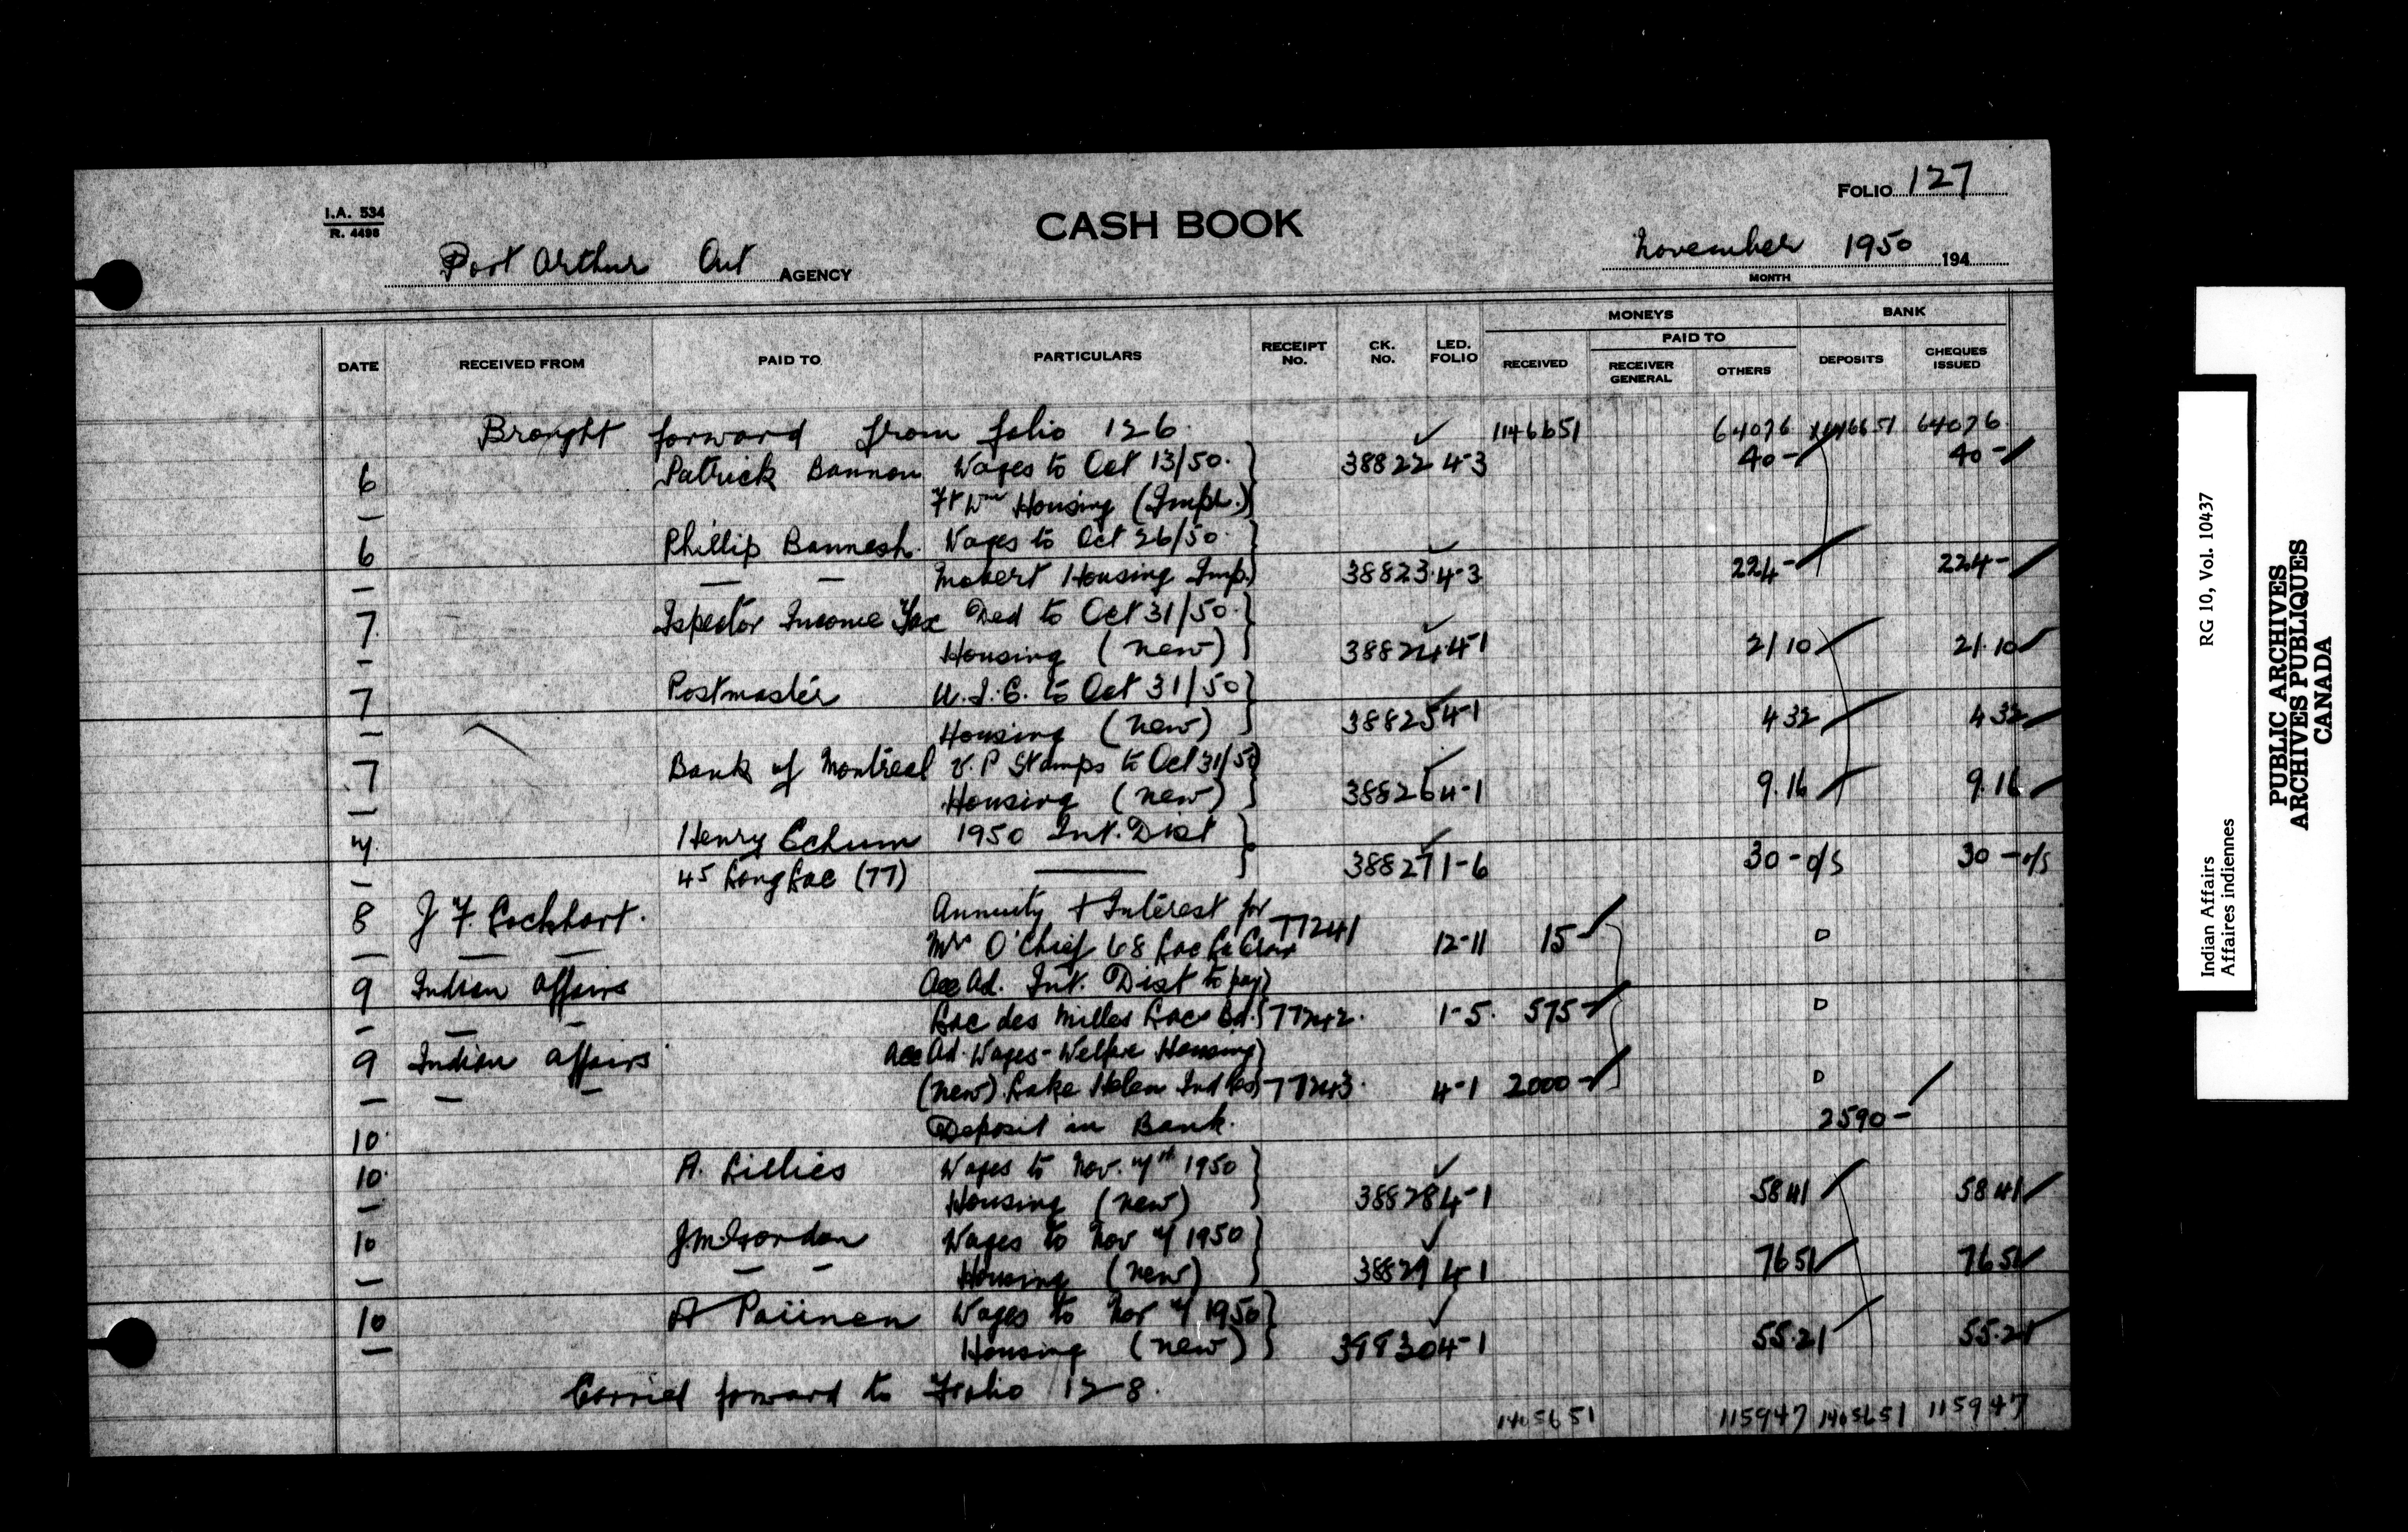 I.A. 534
R. 4498
CASH BOOK
FOLIO 127
Port Arthur Ont AGENCY
November 1950 194
MONTH
DATE RECEIVED FROM PAID TO PARTICULARS RECEIPT No. CK. No. LED. FOLIO MONEYS RECEIVED PAID TO RECEIVER GENERAL OTHERS BANK DEPOSITS CHEQUES ISSUED
Brought forward from folio 126. 1146651 64076 1146651 64076
6 Patrick Bannon Wages to Oct 13/50. 38822 4-3 40- 40-
— Ft Wm Housing (Impr.)
6 Phillip Wages to Oct 26/50.
— — — Mobert Housing Imp. 38823 4-3 224- 224-
7 Ispector Income Tax Ded to Oct 31/50.
— Housing (new) 38824 4-1 21 10 21.10
7 Postmaster U.I.C. to Oct 31/50
— Housing (new) 38825 4-1 4 32 4 32
7 Bank of Montreal V.P Stamps to Oct 31/50
— Housing (new) 38826 4-1 9.16 9.16
7 Henry Echum 1950 Int. Dist
— 45 Long Lac (77) — 38827 1-6 30- o/s 30- o/s
8 J F. Lockhart. Annuity + Interest for
— — — Mrs O'Chief 68 Lac La Croix 77241 12-11 15- D
9 Indian Affairs Acc Ad. Int. Dist to pay
— — — Lac des Milles Lacs Bd. 77242. 1-5. 575- D
9 Indian Affairs Acc Ad. Wages-Welfare Housing
— — — (new) Lake Helen Ind Res 77243. 4-1 2000- D
10 Deposit in Bank. 2590-
10 A. Lillies Wages to Nov. 4th 1950
— Housing (new) 38828 4-1 58 41 58 41
10 J.M. Gordon Wages to Nov 4 1950
— — — Housing (new) 38829 4-1 76 51 76 51
10 A Paiinen Wages to Nov 4 1950
— Housing (new) 38830 4-1 55.21 55.21
Carried forward to Folio 128.
1405651 115947 1405651 115947
RG 10, Vol. 10437
Indian Affairs
Affaires indiennes
PUBLIC ARCHIVES
ARCHIVES PUBLIQUES
CANADA